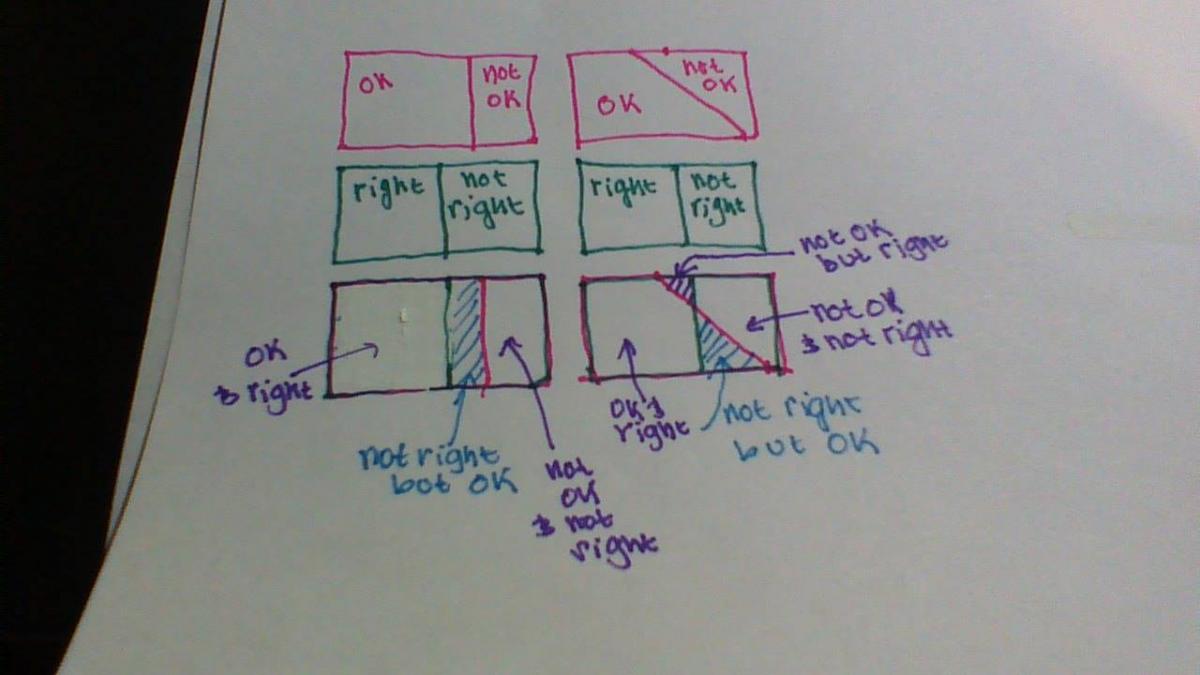 OK
not
OK
OK
not
OK
right
not
right
right
not
right
not OK
but right
OK
& right
not OK
& not right
not right
but OK
not
OK
& not
right
OK &
right
not right
but OK